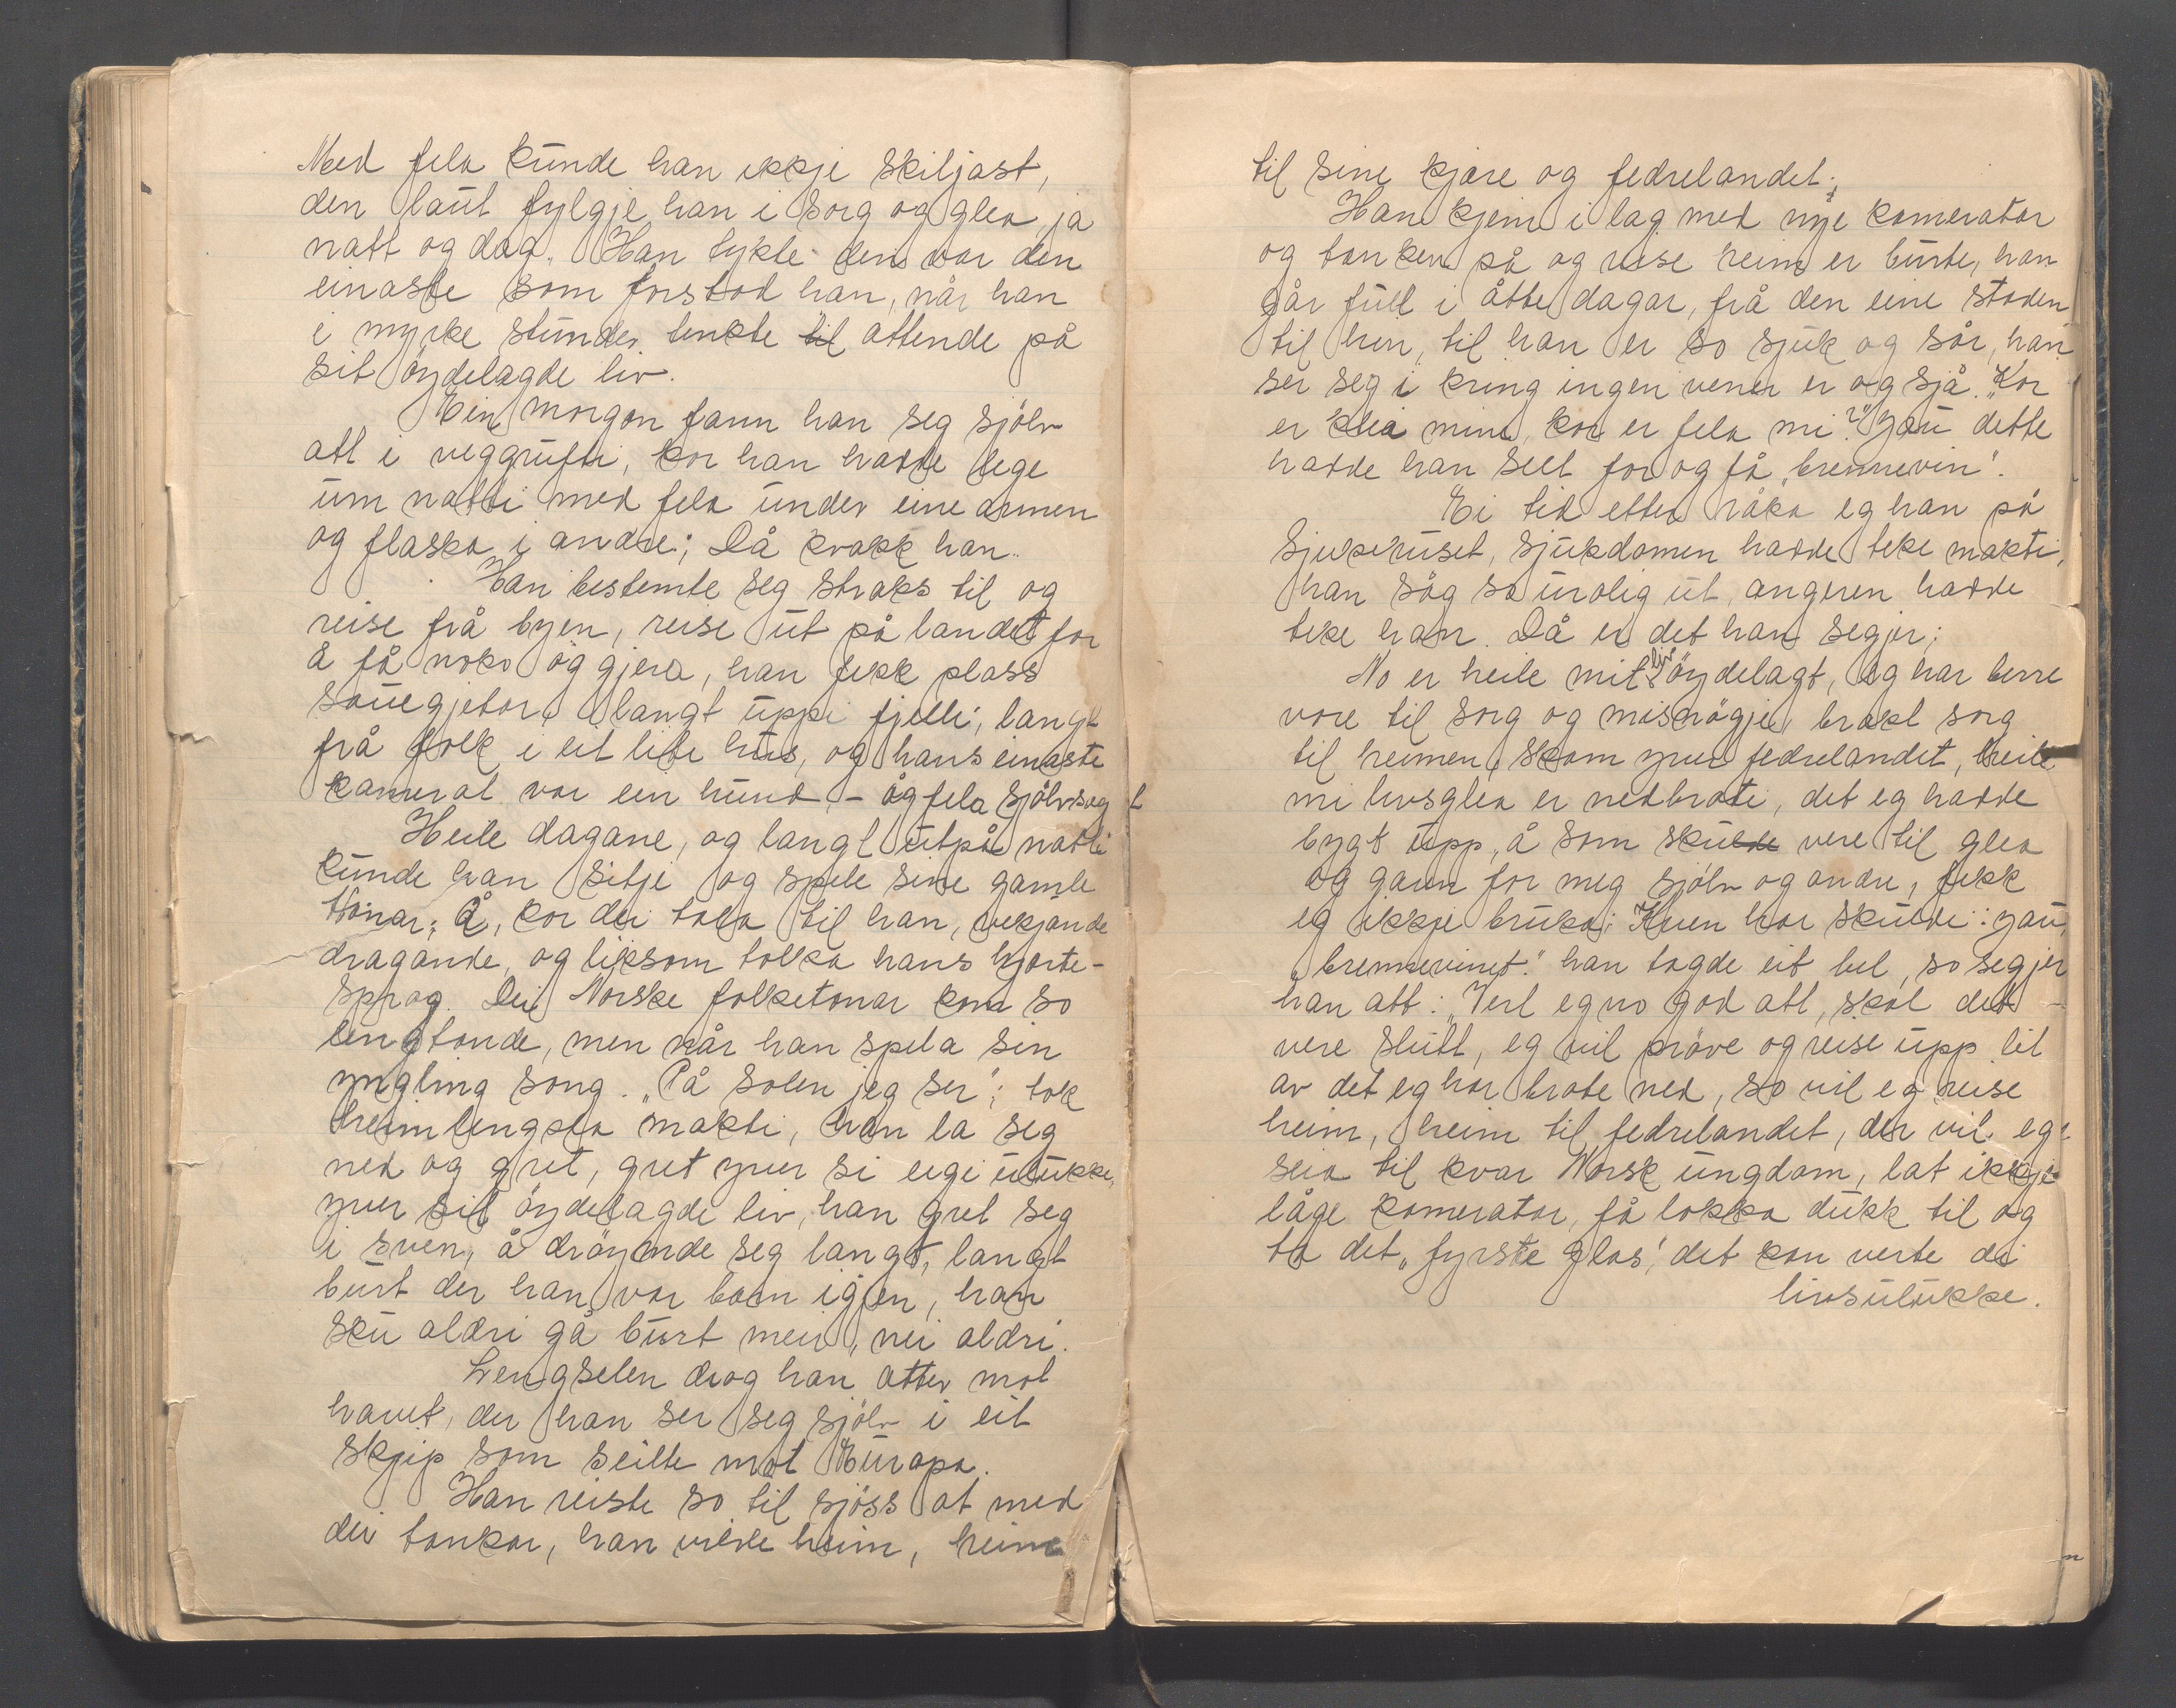 Med fela kunde han ikkje skiljast,
den laut fylgje han i sorg og glea, ja
natt og dag. Han tykte den var den
einaste som forstod han, når han
i myrke stunder tenkte til attende på
sit öydelagde liv.
Ein morgon fann han seg sjölv
att i veggrufti, kor han hadde lege
um natti med fela under eine armen
og flaska i andre; Då kvakk han.
Han bestemte seg straks til og
reise frå byen, reise ut på landet for
å få noko og gjera, han fekk plass
sauegjetar, langt uppi fjelli, langt
frå folk i eit lite hus, og hans einaste
kamerat var ein hund, - og fela sjölvsagt
Heile dagane, og langt utpå natti
kunde han sitje og spele sine gamle
tonar; Å, kor dei tala til han, vekjande
dragande, og liksom tolka hans hjarte-
sprog. Dei Norske folketonar kom so
lengtande, men når han spela sin
yngling song. "På solen jeg ser"; tok
heimlengsla makti, han la seg
ned og gret, gret yver si eigi ulukke,
yver sit öydelagde liv, han gret seg
i svevn, å dröymde seg langt, langt
burt der han var barn igjen, han
sku aldri gå burt meir, nei aldri.
Lengselen drog han atter mot
havet, der han ser seg sjölv i eit
skjip som seilte mot Europa.
Han reiste so til sjöss at med
dei tankar, han vilde heim, heim
til sine kjære og fedrelandet;
Han kjem i lag med nye kameratar
og tanken på og reise heim er burte, han
går full i åtte dagar, frå den eine staden
til hin, til han er so sjuk og sår, han
ser seg i kring ingen vener er og sjå. "Kor
er klea mine, kor er fela mi?" Jau dette
hadde han selt for og få "brennevin".
Ei tid etter råka eg han på
sjukehuset, sjukdomen hadde teke makti,
han såg so urolig ut, angeren hadde
teke han. Då er det han segjer;
No er heile mit liv öydelagt, eg har berre
vore til sorg og misnögje, brakt sorg
til heimen, skam yver fedrelandet, heile
mi livsglea er nedbroti, det eg hadde
bygt upp, å som skulde vere til glea
og gavn for meg sjölv og andre, fekk
eg ikkje bruka; Kven har skuldi: jau,
"brennevinet." han tagde eit bel, so segjer
han att: "Vert eg no god att, skal det
vere slutt, eg vil pröve og reise upp lit
av det eg har brote ned, so vil eg reise
heim, heim til fedrelandet, der vil eg
seia til kvar Norsk ungdom, lat ikkje
låge kameratar, få lokka dukk til og
ta det "fyrste glas", det kan verte di
livsulukke.